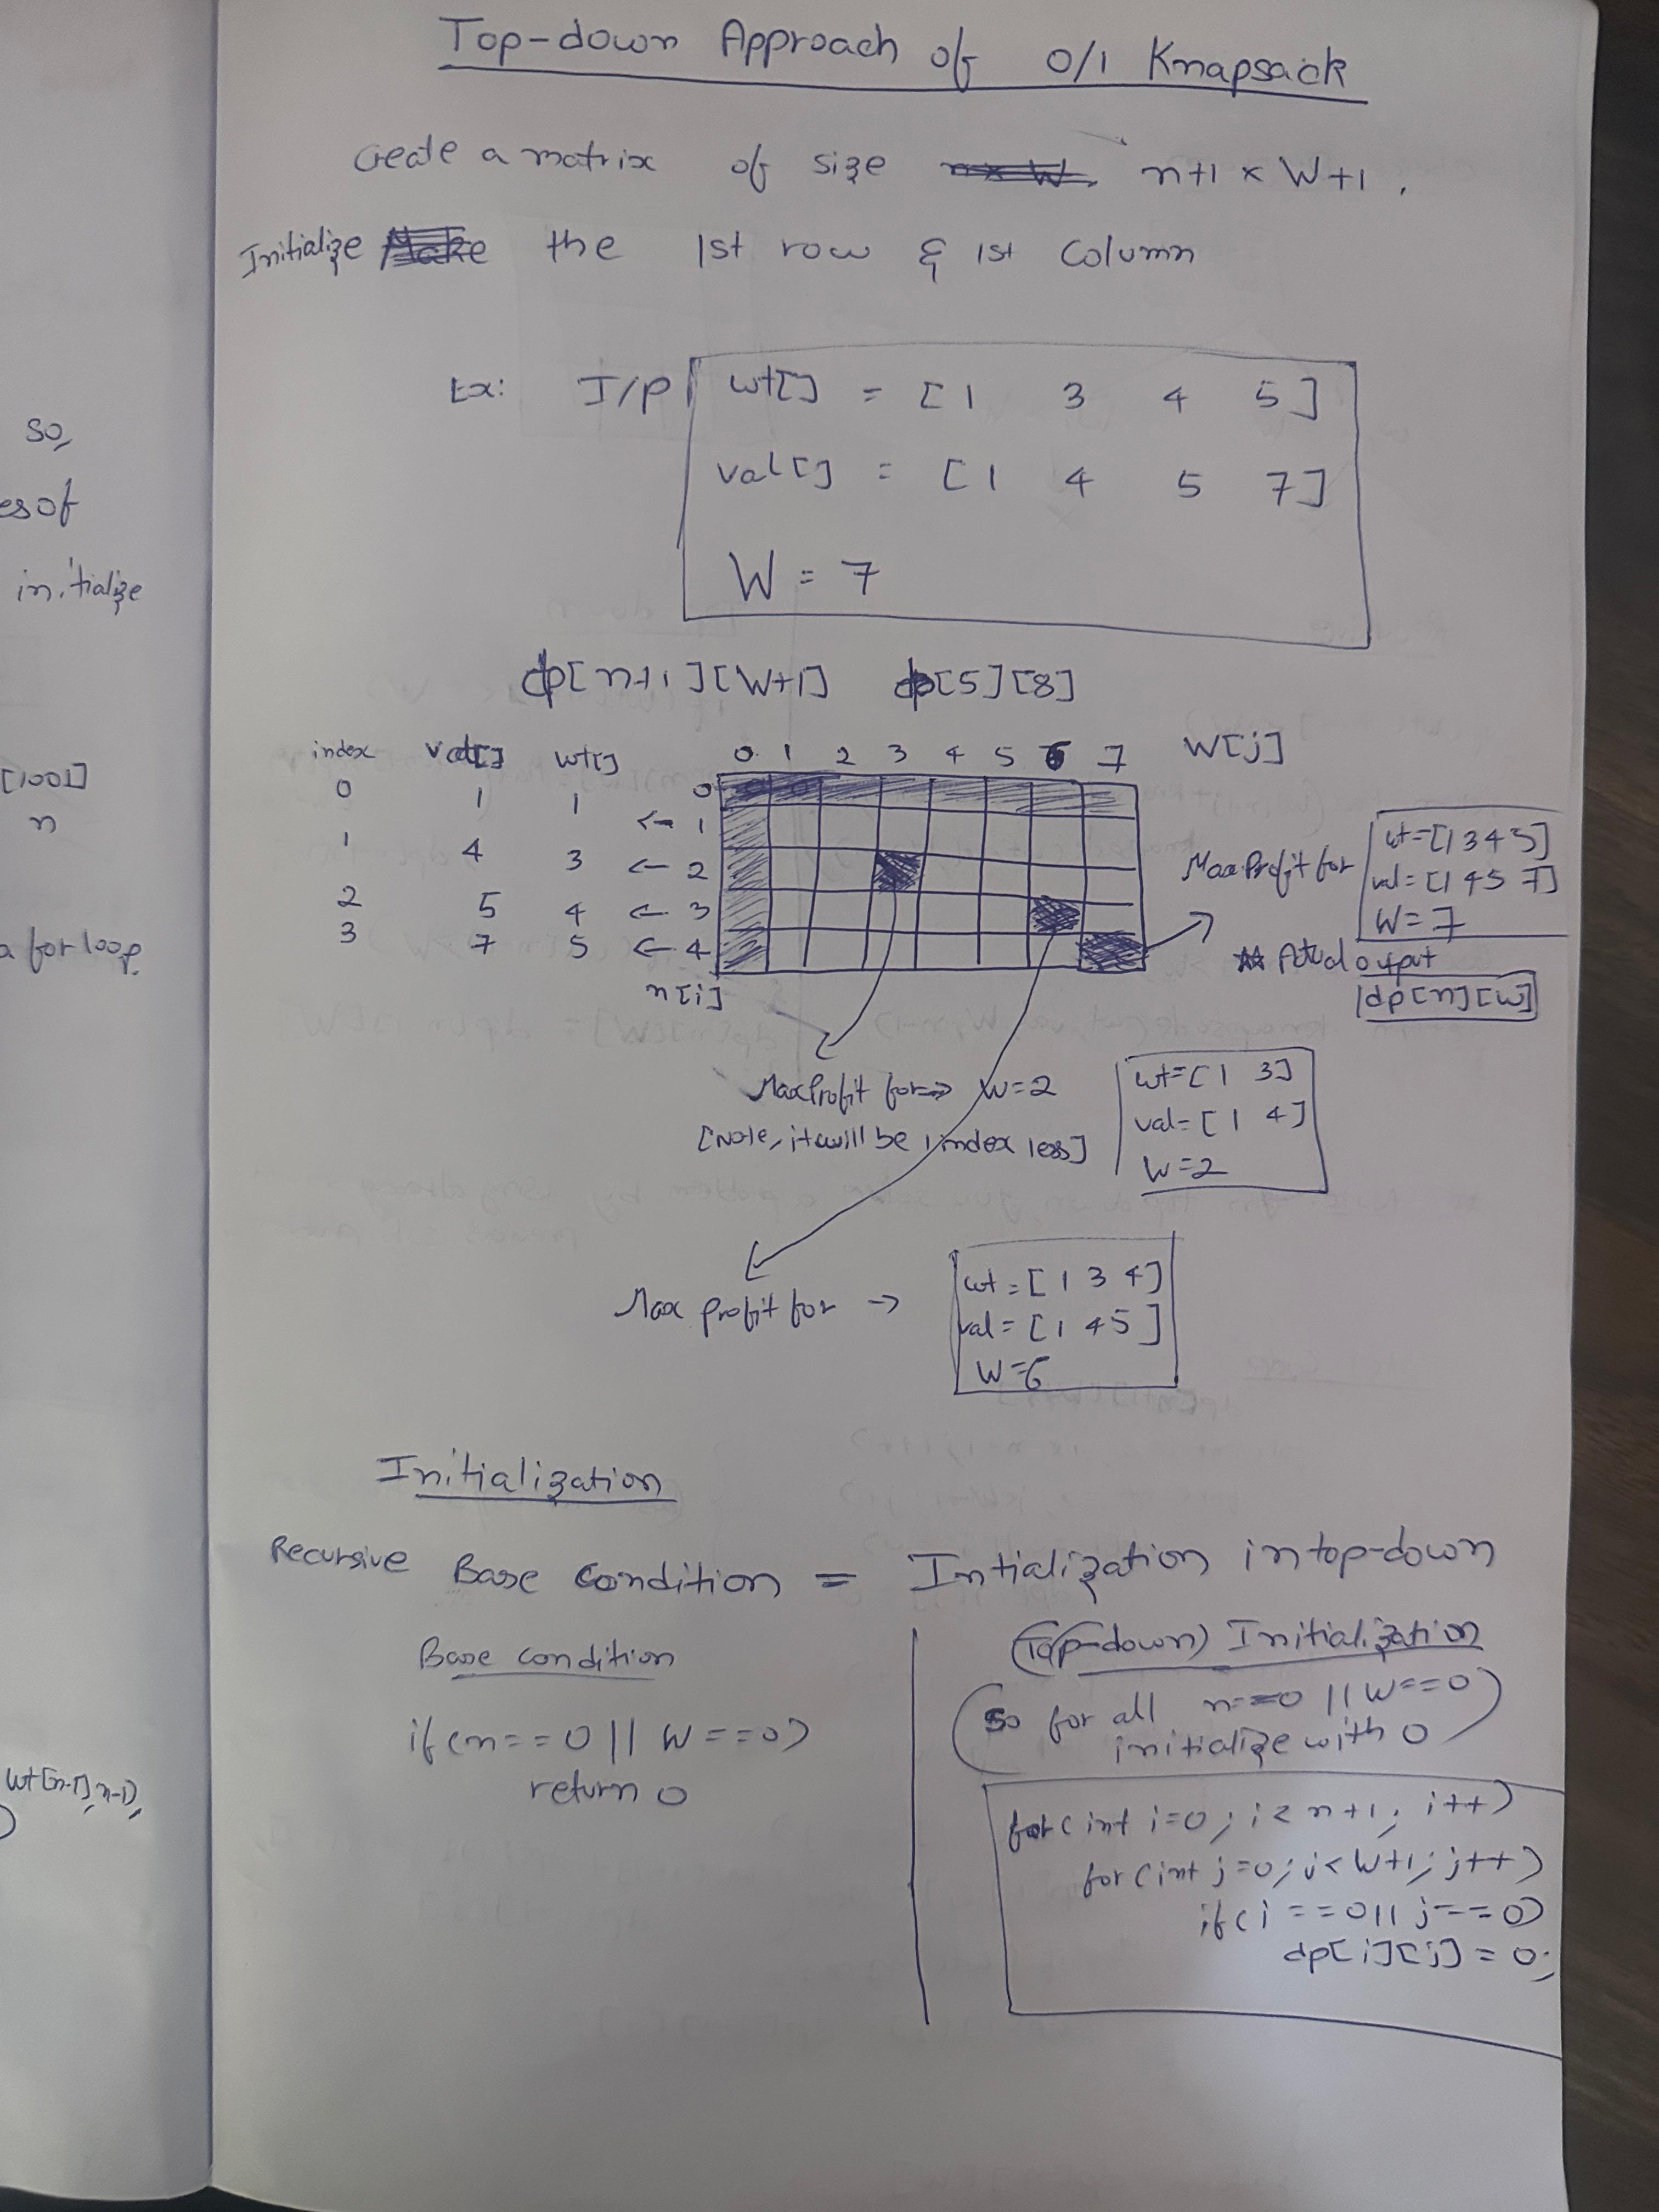 Top-down Approach of 0/1 Knapsack
Create a matrix of size n+1 x W+1.
Initialize the 1st row & 1st Column
Ex: I/P wt[] = [1 3 4 5]
val[] = [1 4 5 7]
W = 7
dp[n+1][W+1] dp[5][8]
index val[] wt[] 0 1 2 3 4 5 6 7 W[j]
0 1 1 0
1 4 3 ← 1
2 5 4 ← 2
3 7 5 ← 3
← 4
n[i]
Max Profit for → wt=[1 3 4 5]
val=[1 4 5 7]
W=7
** Actual output
dp[n][W]
Max Profit for → W=2
[Note, it will be 1 index less]
wt=[1 3]
val=[1 4]
W=2
Max profit for →
wt=[1 3 4]
val=[1 4 5]
W=6
Initialization
Recursive Base Condition = Intialization in top-down
Base condition
if(n==0 || W==0)
return 0
(Top-down) Initialization
(So for all n==0 || W==0)
initialize with 0
for(int i=0; i<n+1; i++)
for(int j=0; j<W+1; j++)
if(i==0 || j==0)
dp[i][j] = 0;
so,
es of
initialize
[1001]
n
a for loop.
wt[n-1], n-1),